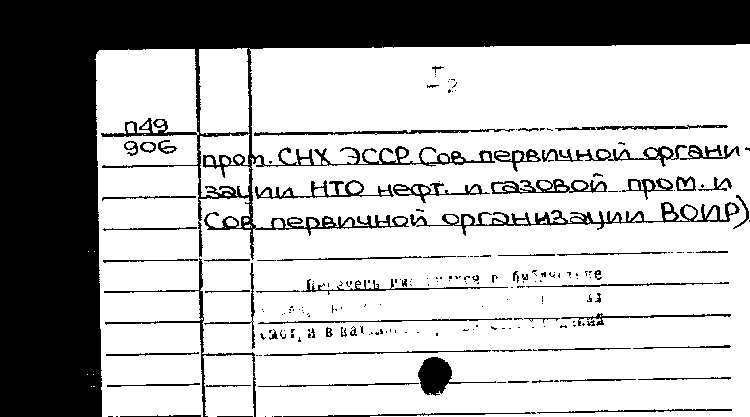 I
2
П49
906
пром. СНХ ЭССР. Сов первичной органи-
зации НТО нефт. и газовой пром. и
Сов первичной организации ВОИР)
Перечень в библиотеке